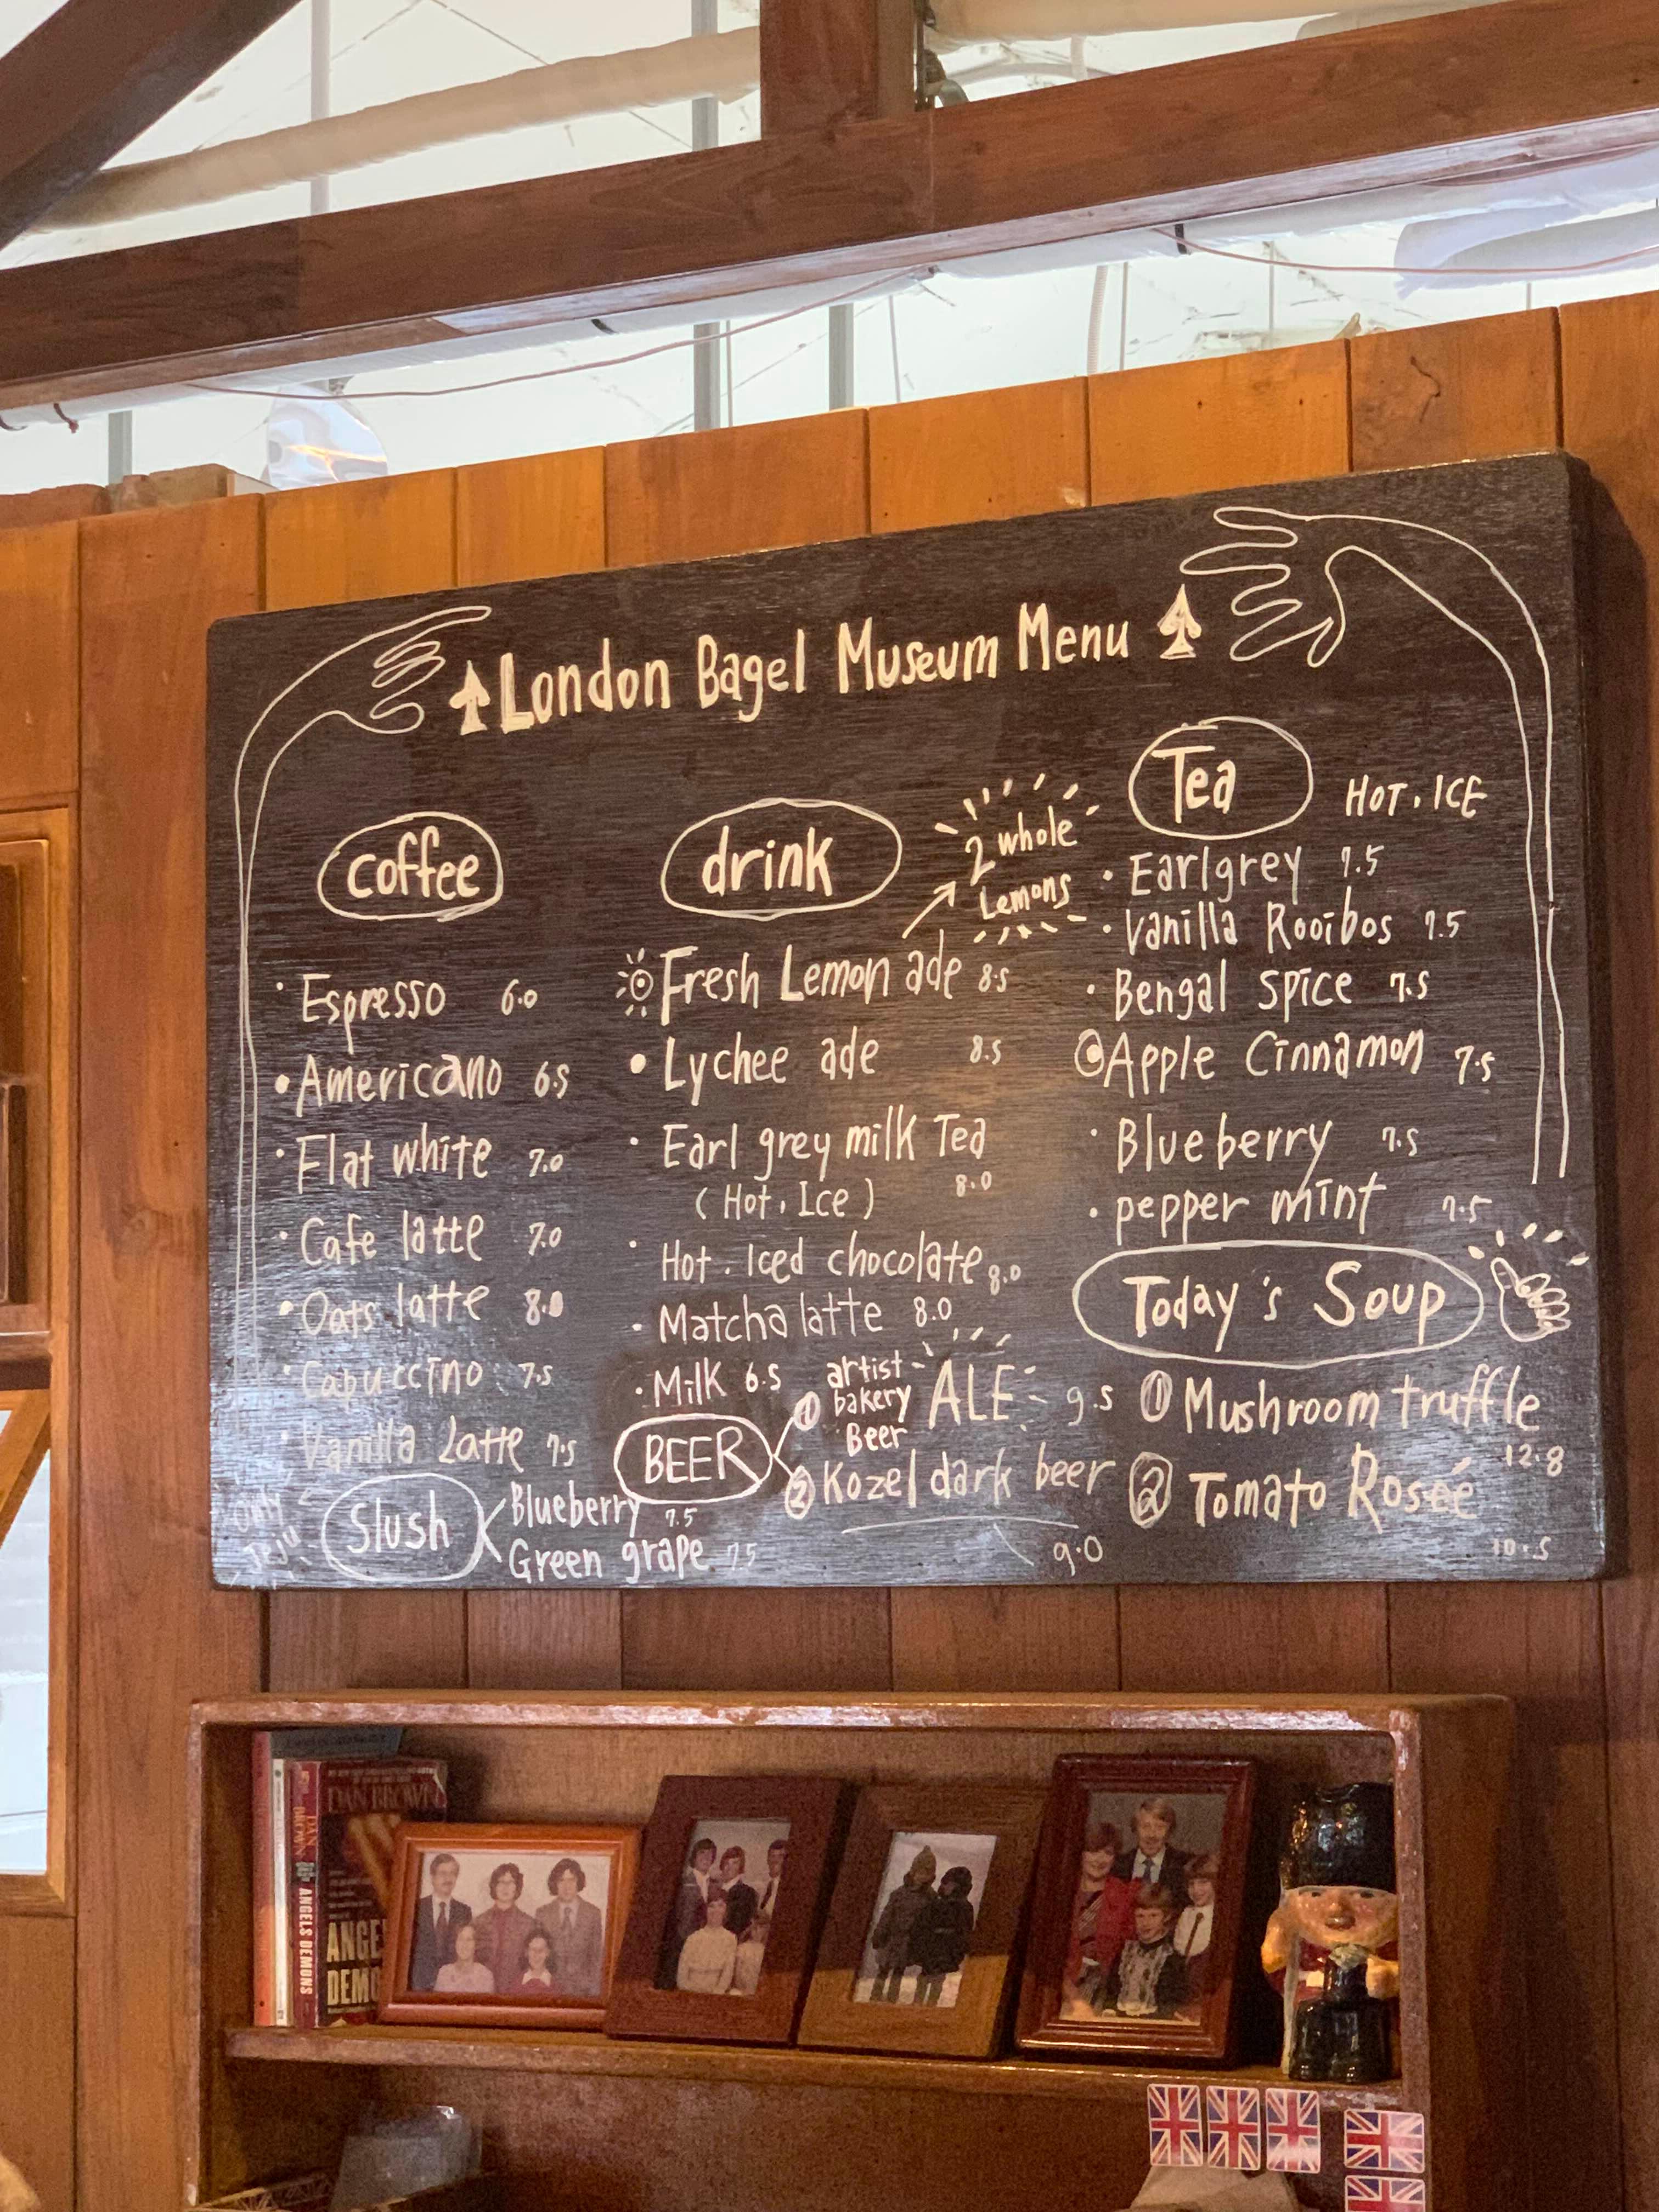 London Bagel Museum Menu
coffee
Espresso 6.0
Americano 6.5
Flat white 7.0
Cafe latte 7.0
Oats latte 8.0
Capuccino 7.5
Vanilla Latte 7.5
only
Jeju
Slush
Blueberry 7.5
Green grape 7.5
drink
2 whole
Lemons
Fresh Lemon ade 8.5
Lychee ade 8.5
Earl grey milk Tea
(Hot, Ice) 8.0
Hot. Iced chocolate 8.0
Matcha latte 8.0
Milk 6.5
BEER
① artist bakery Beer ALE 9.5
② Kozel dark beer
9.0
Tea HOT. ICE
Earlgrey 7.5
Vanilla Rooibos 7.5
Bengal spice 7.5
Apple Cinnamon 7.5
Blueberry 7.5
pepper mint 7.5
Today's Soup
① Mushroom truffle
12.8
② Tomato Roseé
10.5
DAN BROWN
ANGELS DEMONS
DAN BROWN
ANGE
DEMO